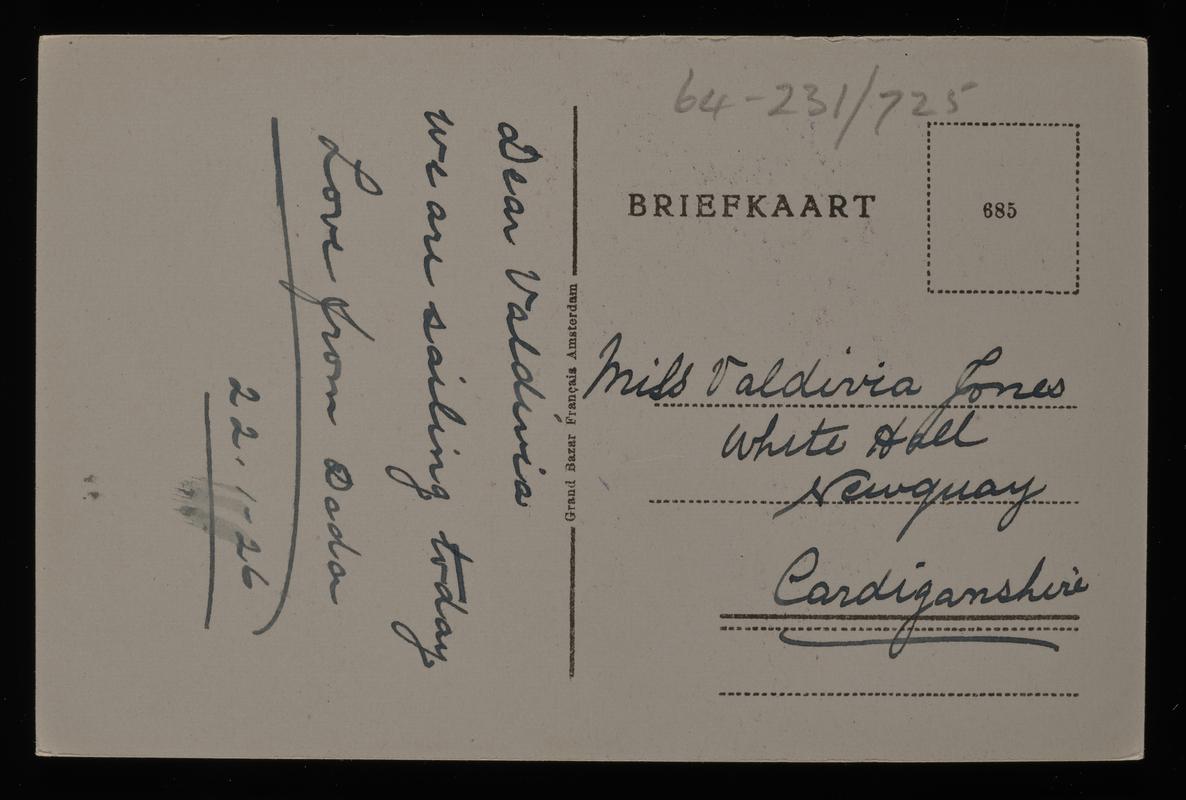 64-231/725
BRIEFKAART
685
Miss Valdivia Jones
White Hall
Newquay
Cardiganshire
Grand Bazar Français Amsterdam
Dear Valdivia
We are sailing today
Love from Dada
22.1-26